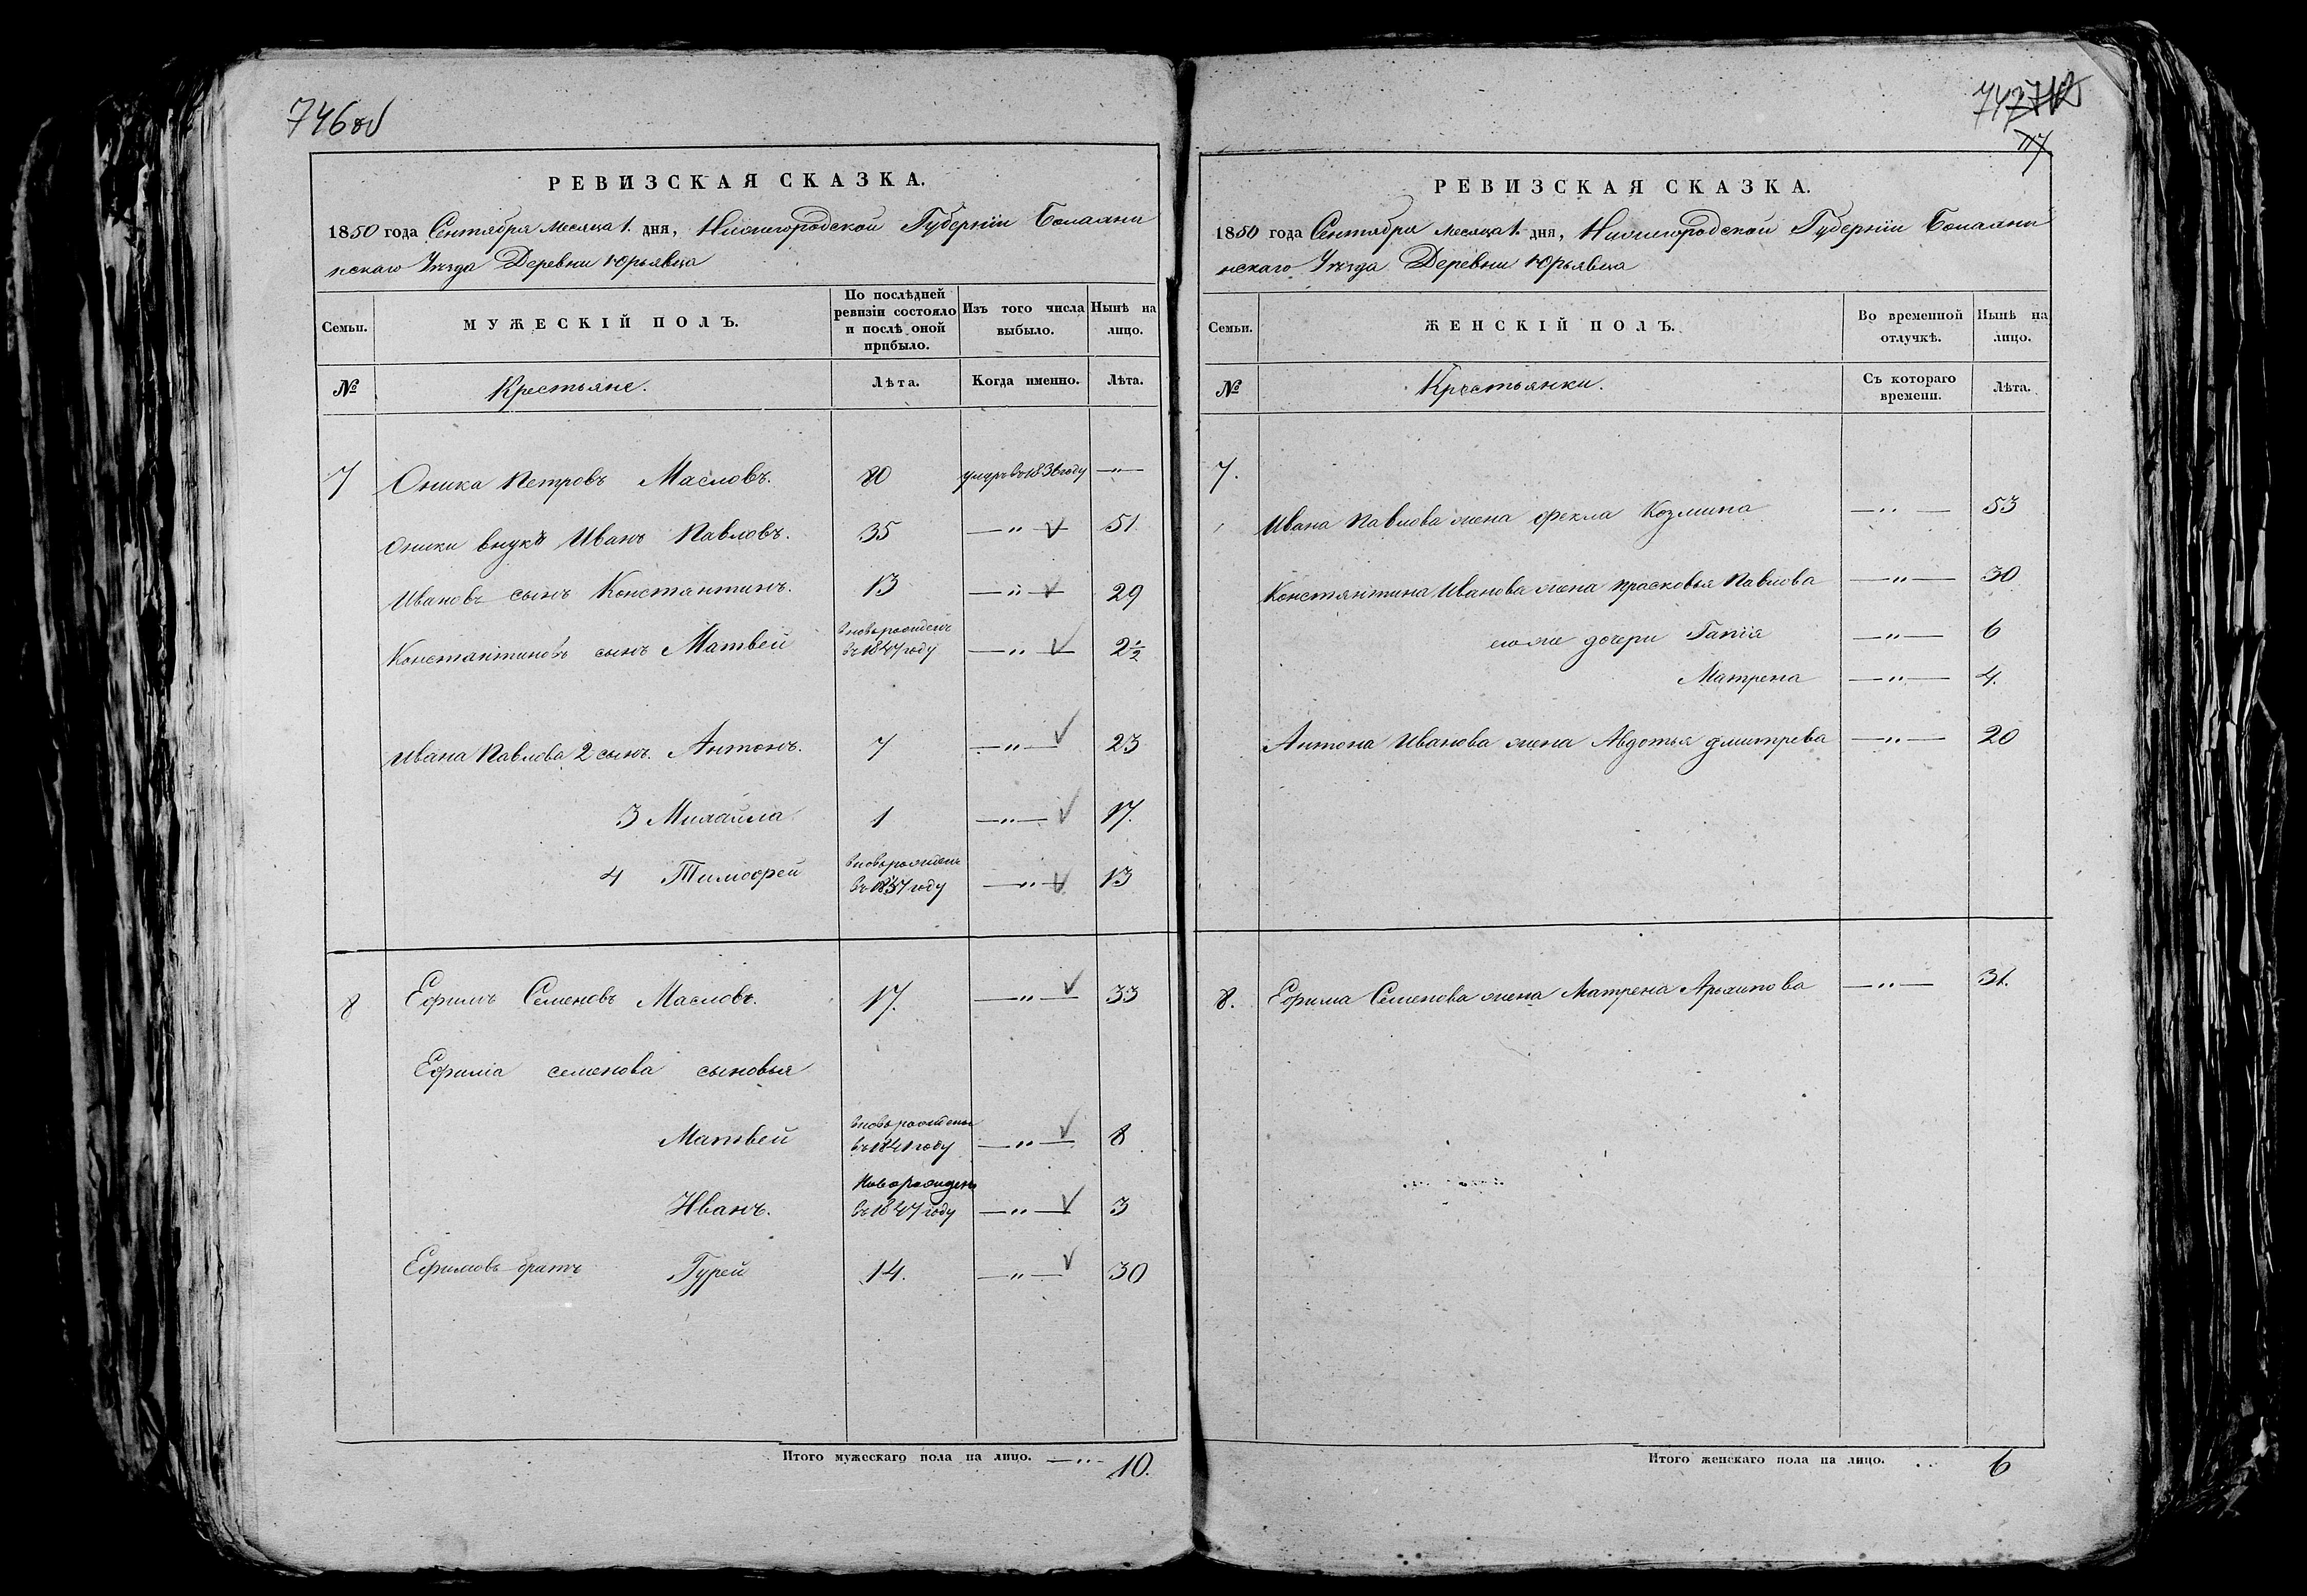 746об
РЕВИЗСКАЯ СКАЗКА.
1850 года Сентября месяца 1. дня, Нижегородской Губерніи Балахни
нскаго Уѣзда Деревни Юрьявца
Семьи.
МУЖЕСКІЙ ПОЛЪ.
По послѣдней ревизіи состояло и послѣ оной прибыло.
Изъ того числа выбыло.
Нынѣ на лицо.
№
Крестьяне.
Лѣта.
Когда именно.
Лѣта.
7 Оника Петровъ Масловъ. 80 умеръ въ 1836 году —"—
Оники внукъ Иванъ Павловъ. 35 —"— V 51
Ивановъ сынъ Константинъ. 13 —"— V 29
Константиновъ сынъ Матвей вновьрожденъ въ 1847 году —"— V 2½
Ивана Павлова 2 сынъ. Антонъ. 7 —"— V 23
3 Михайла 1 —"— V 17.
4 Тимофей вновьрожденъ въ 1837 году —"— V 13
8 Ефимъ Семеновъ Масловъ. 17. —"— V 33
Ефима семенова сыновья
Матвей вновьрожденъ въ 1841 году —"— V 8
Иванъ. Новорожденъ въ 1847 году —"— V 3
Ефимовъ братъ Гурей 14. —"— V 30
Итого мужескаго пола на лицо. —"— 10.
747
РЕВИЗСКАЯ СКАЗКА.
1850 года Сентября месяца 1. дня, Нижегородской Губерніи Балахни
нскаго Уѣзда Деревни Юрьявца
Семьи.
ЖЕНСКІЙ ПОЛЪ.
Во временной отлучкѣ.
Нынѣ на лицо.
№
Крестьянки.
Съ котораго времени.
Лѣта.
7.
Ивана Павлова жена Фекла Козмина —"— 53
Константина Иванова жена Прасковья Павлова —"— 30
ихже дочери Гапія —"— 6
Матрена —"— 4.
Антона Иванова жена Авдотья Дмитрева —"— 20
8. Ефима Семенова жена Матрена Архипова —"— 31.
Итого женскаго пола на лицо. 6